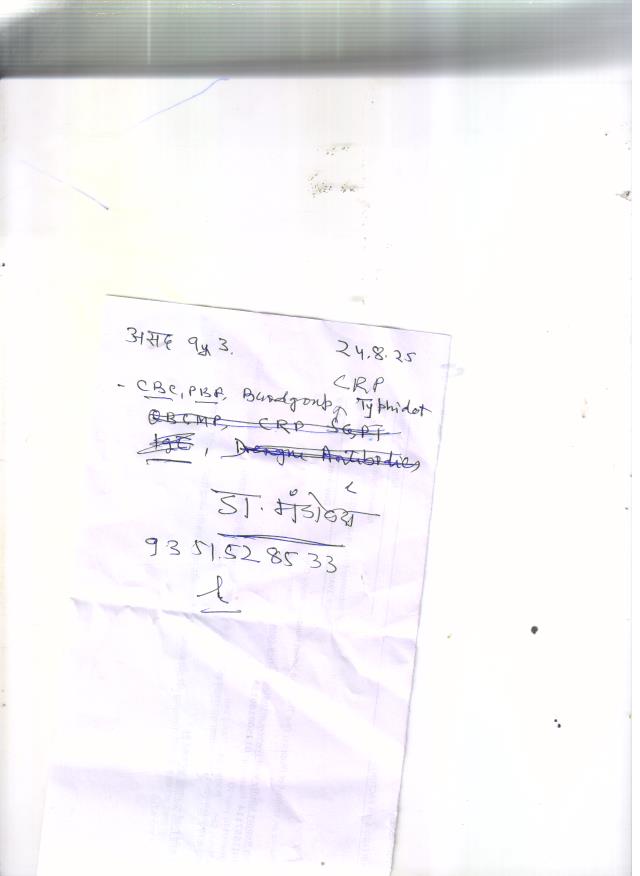 असद 9y 3.
24.8.25
CRP
- CBC, PBF, Bloodgroup, Typhidot
QBCMP, CRP SGPT
IgE, Dengue Antibodies
डा. मंडोव्रा
93 51.52 85 33